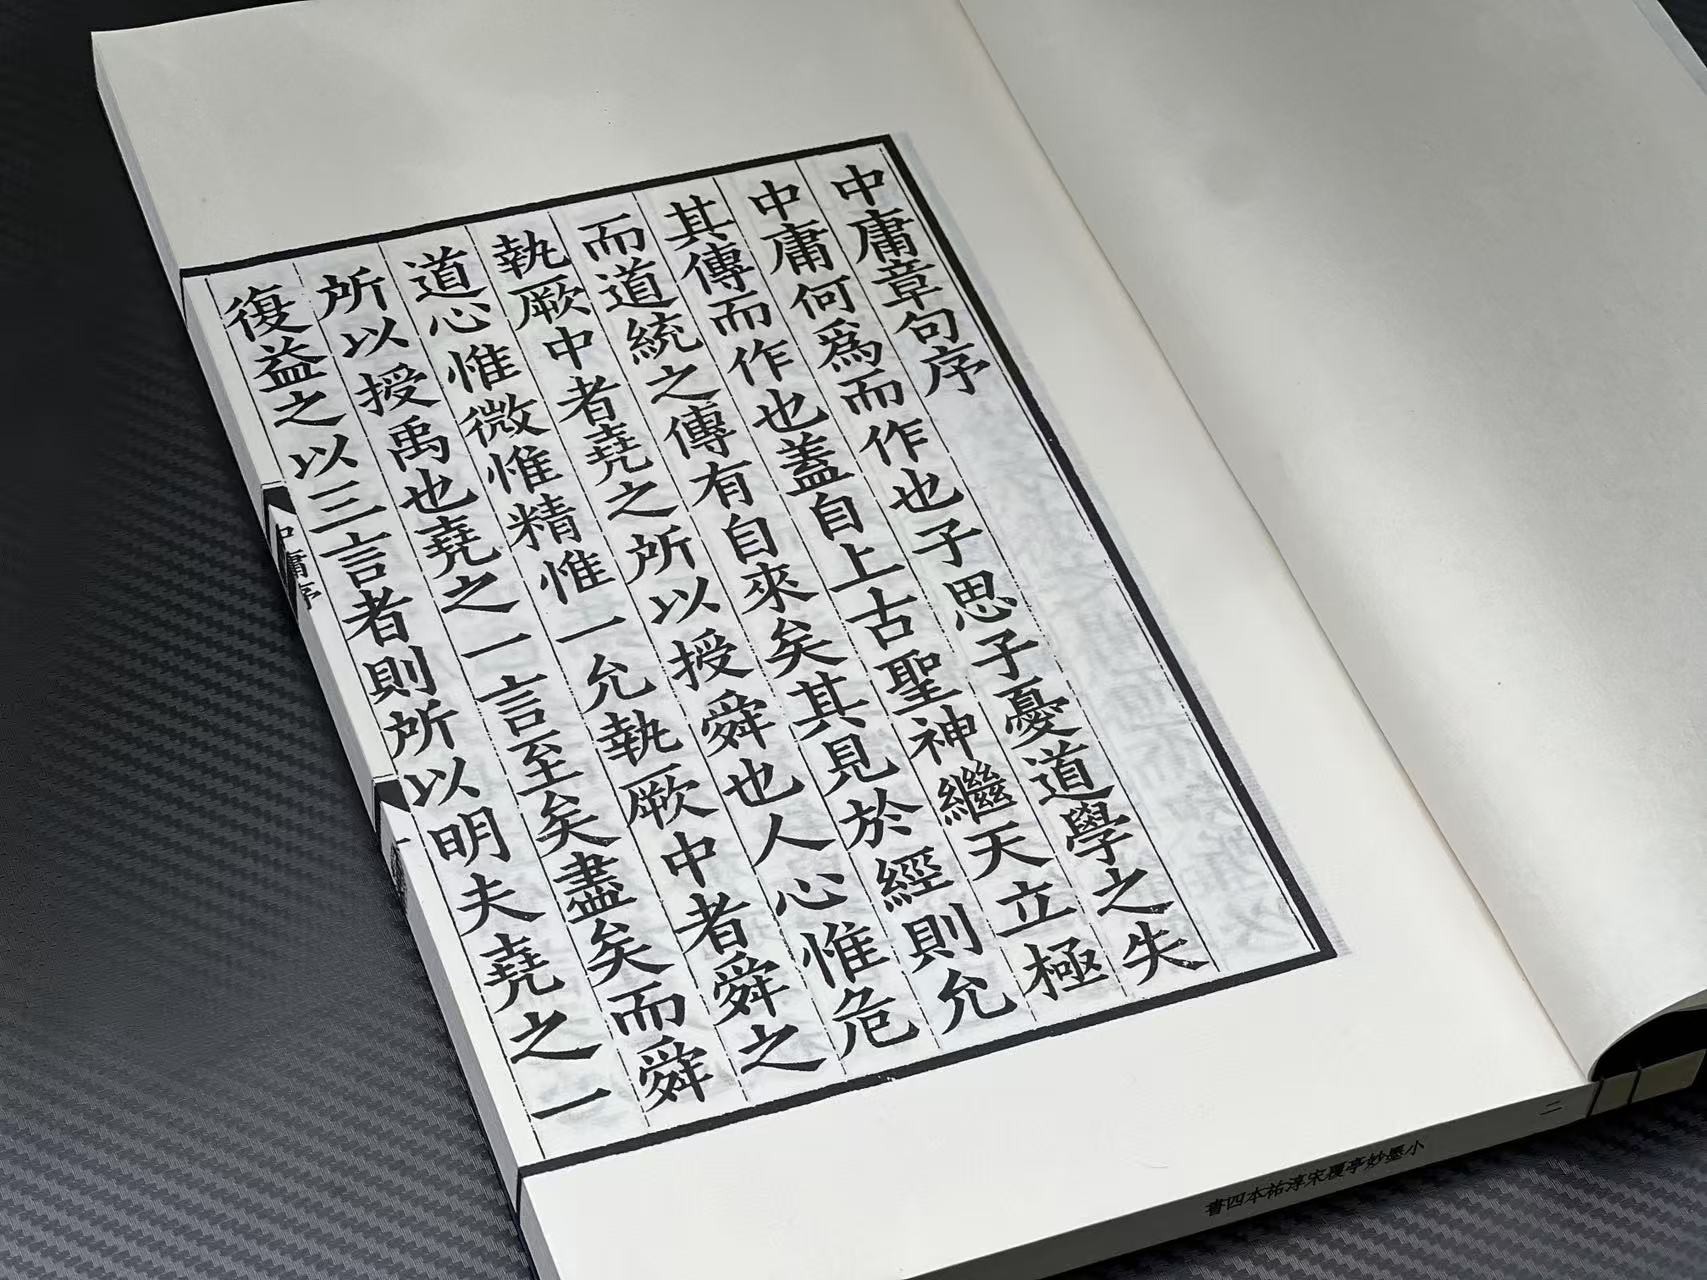 中庸章句序
中庸何爲而作也子思子憂道學之失
其傳而作也蓋自上古聖神繼天立極
而道統之傳有自來矣其見於經則允
執厥中者堯之所以授舜也人心惟危
道心惟微惟精惟一允執厥中者舜之
所以授禹也堯之一言至矣盡矣而舜
復益之以三言者則所以明夫堯之一
中庸序
一
小墨妙亭覆宋淳祐本四書
二